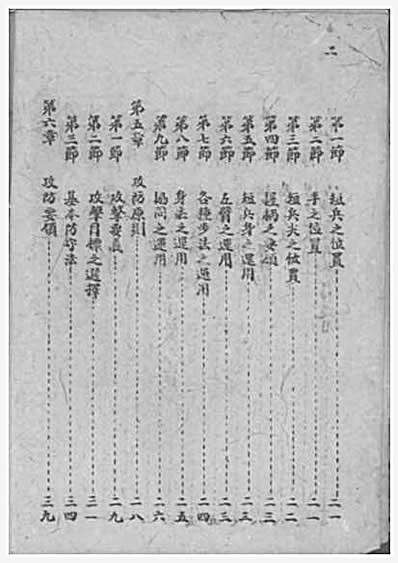 二
第一節 短兵之位置 二一
第二節 手之位置 二一
第三節 短兵尖之位置 二二
第四節 握柄之要領 二三
第五節 短兵身之運用 二三
第六節 左臂之運用 二三
第七節 各種步法之運用 二四
第八節 身法之運用 二五
第九節 協同之運用 二六
第五章 攻防原則 二八
第一節 攻擊要義 二九
第二節 攻擊目標之選擇 三一
第三節 基本防守法 三四
第六章 攻防要領 三九